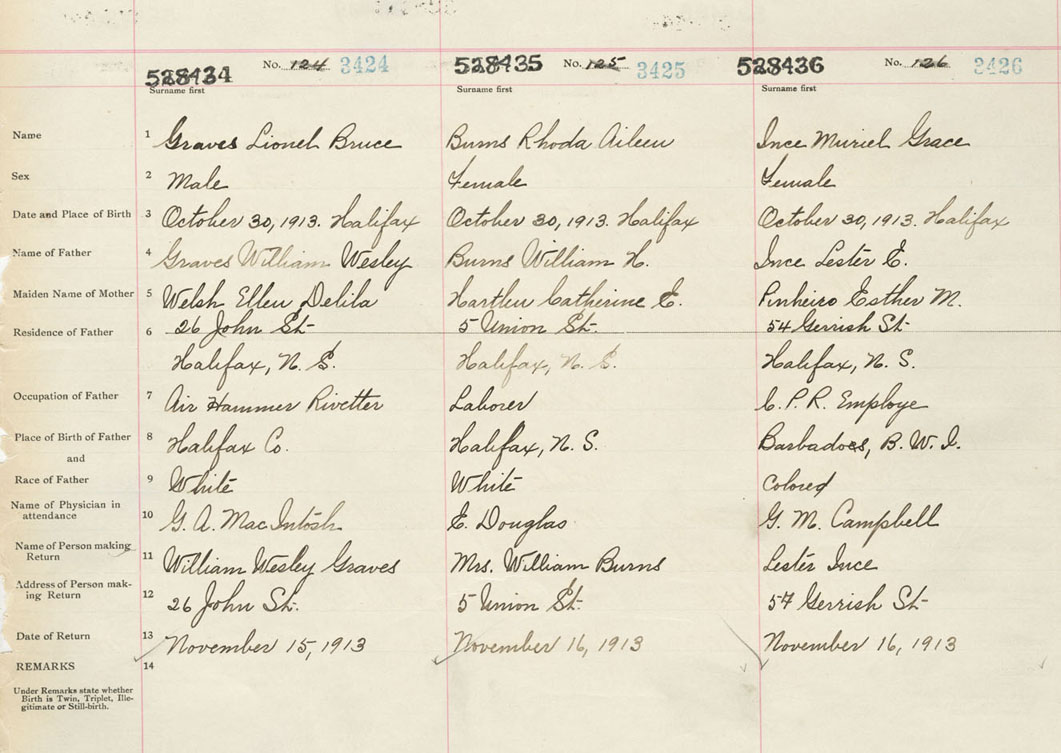 528434 No. 124 3424 528435 No. 125 3425 528436 No. 126 3426
Surname first Surname first Surname first
Name 1 Graves Lionel Bruce Burns Rhoda Aileen Ince Muriel Grace
Sex 2 Male Female Female
Date and Place of Birth 3 October 30, 1913. Halifax October 30, 1913. Halifax October 30, 1913. Halifax
Name of Father 4 Graves William Wesley Burns William H. Ince Lester E.
Maiden Name of Mother 5 Welsh Ellen Delila Hartlen Catherine E. Pinheiro Esther M.
Residence of Father 6 26 John St. 5 Union St. 54 Gerrish St.
Halifax, N. S. Halifax, N. S. Halifax, N. S.
Occupation of Father 7 Air Hammer Rivetter Laborer C. P. R. Employe
Place of Birth of Father 8 Halifax Co. Halifax, N. S. Barbadoes, B. W. I.
and
Race of Father 9 White White Colored
Name of Physician in
attendance 10 G. A. MacIntosh E. Douglas G. M. Campbell
Name of Person making
Return 11 William Wesley Graves Mrs. William Burns Lester Ince
Address of Person mak-
ing Return 12 26 John St. 5 Union St. 57 Gerrish St.
Date of Return 13 November 15, 1913 November 16, 1913 November 16, 1913
REMARKS 14
Under Remarks state whether
Birth is Twin, Triplet, Ille-
gitimate or Still-birth.